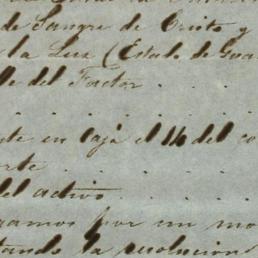 de Sangre de Cristo y
la Luz (Estado de Gua
lle del Factor . .
. . . . . .
te en Caja el 14 del co
rte . . . .
del activo . . .
gamos por un mo
tando la resolucion